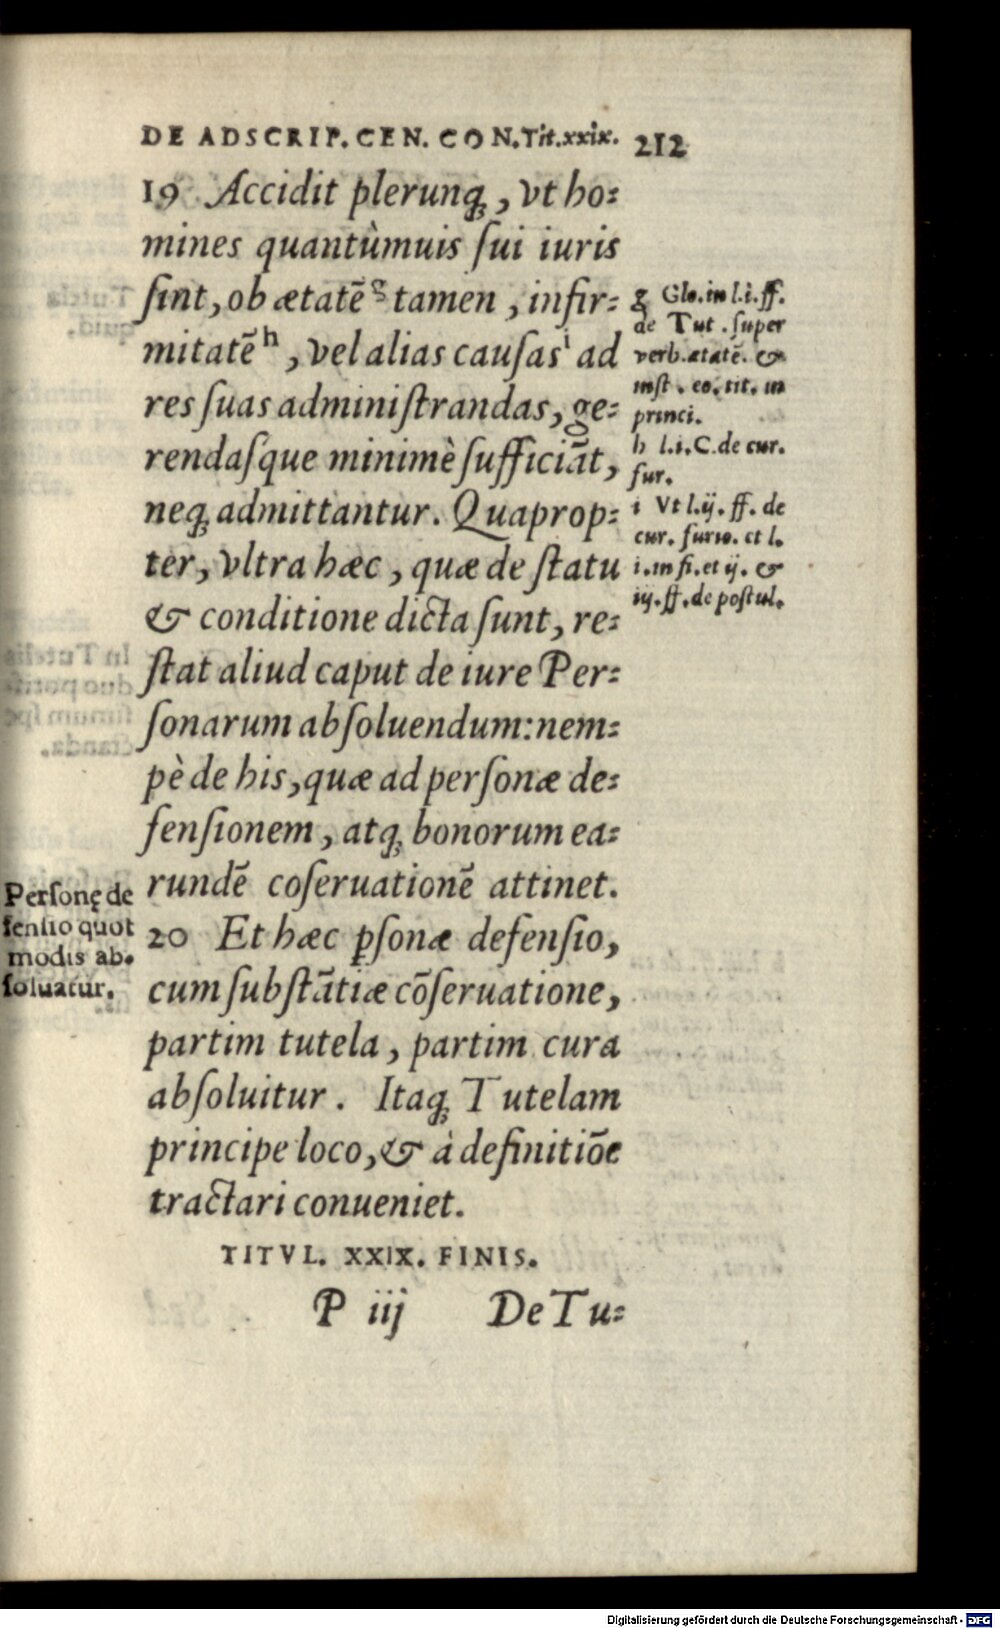 DE ADSCRIP. CEN. CON. Tit. xxix. 212
19 Accidit plerunq;, vt ho-
mines quantùmuis ſui iuris
ſint, ob ætatē g tamen, infir-
mitatē h, vel alias cauſas i ad
res ſuas adminiſtrandas, ge-
rendaſque minimè ſufficiāt,
neq; admittantur. Quaprop-
ter, vltra hæc, quæ de ſtatu
& conditione dicta ſunt, re-
ſtat aliud caput de iure Per-
ſonarum abſoluendum: nem-
pè de his, quæ ad perſonæ de-
fenſionem, atq; bonorum ea-
rundē coſeruationē attinet.
20 Et hæc ꝑſonæ defenſio,
cum ſubſtātiæ cōſeruatione,
partim tutela, partim cura
abſoluitur. Itaq; Tutelam
principe loco, & à definitiōe
tractari conueniet.
TITVL. XXIX. FINIS.
P iij De Tu-
g Glo. in l.i. ff.
de Tut. ſuper
verb. ætatē. &
inſt. eo. tit. in
princi.
h l.i. C. de cur.
fur.
i Vt l.ij. ff. de
cur. furio. et l.
i. in fi. et ij. &
iij. ff. de poſtul.
Perſonę de
fenſio quot
modis ab-
ſoluatur.
Digitalisierung gefördert durch die Deutsche Forschungsgemeinschaft - DFG